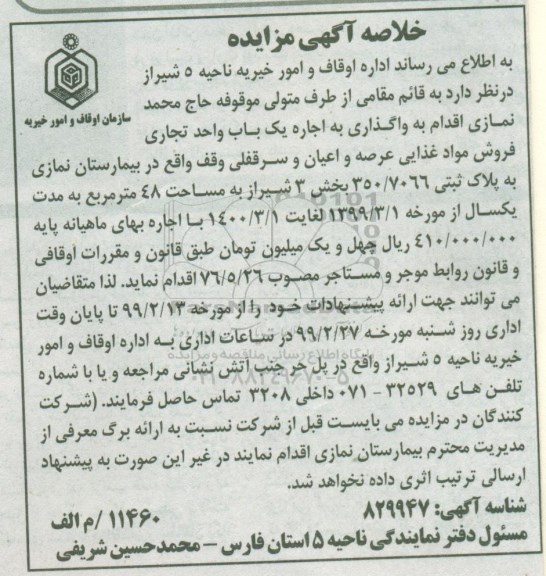 خلاصه آگهی مزایده
سازمان اوقاف و امور خیریه
به اطلاع می رساند اداره اوقاف و امور خیریه ناحیه ۵ شیراز
درنظر دارد به قائم مقامی از طرف متولی موقوفه حاج محمد
نمـازی اقدام به واگـذاری به اجاره یک بـاب واحد تجاری
فروش مواد غذایی عرصه و اعیان و سـرقفلی وقف واقع در بیمارستان نمازی
به پلاک ثبتی ۳۵۰/۷۰۶۶ بخش ۳ شـیراز به مسـاحت ۴۸ مترمربع به مدت
یکسـال از مورخه ۱۳۹۹/۳/۱ لغایت ۱۴۰۰/۳/۱ بـا اجاره بهای ماهیانه پایه
۴۱۰/۰۰۰/۰۰۰ ریال چهل و یک میلیون تومان طبق قانون و مقررات اوقافی
و قانون روابط موجر و مستاجر مصوب ۷۶/۵/۲۶ اقدام نماید. لذا متقاضیان
می توانند جهت ارائه پیشـنهادات خـود را از مورخه ۹۹/۲/۱۳ تا پایان وقت
اداری روز شـنبه مورخـه ۹۹/۲/۲۷ در سـاعات اداری بـه اداره اوقاف و امور
خیریه ناحیه ۵ شـیراز واقع در پل حر جنب آتش نشانی مراجعه و یا با شماره
تلفـن هـای ۳۲۵۲۹ - ۰۷۱ داخلی ۳۲۰۸ تماس حاصل فرمایند. (شـرکت
کنندگان در مزایده می بایسـت قبل از شرکت نسـبت به ارائه برگ معرفی از
مدیریت محترم بیمارستان نمازی اقدام نمایند در غیر این صورت به پیشنهاد
ارسالی ترتیب اثری داده نخواهد شد.
شناسه آگهی: ۸۲۹۹۴۷
۱۱۴۶۰/م الف
مسئول دفتر نمایندگی ناحیه ۵ استان فارس – محمدحسین شریفی
پایگاه اطلاع رسانی مناقصه و مزایده